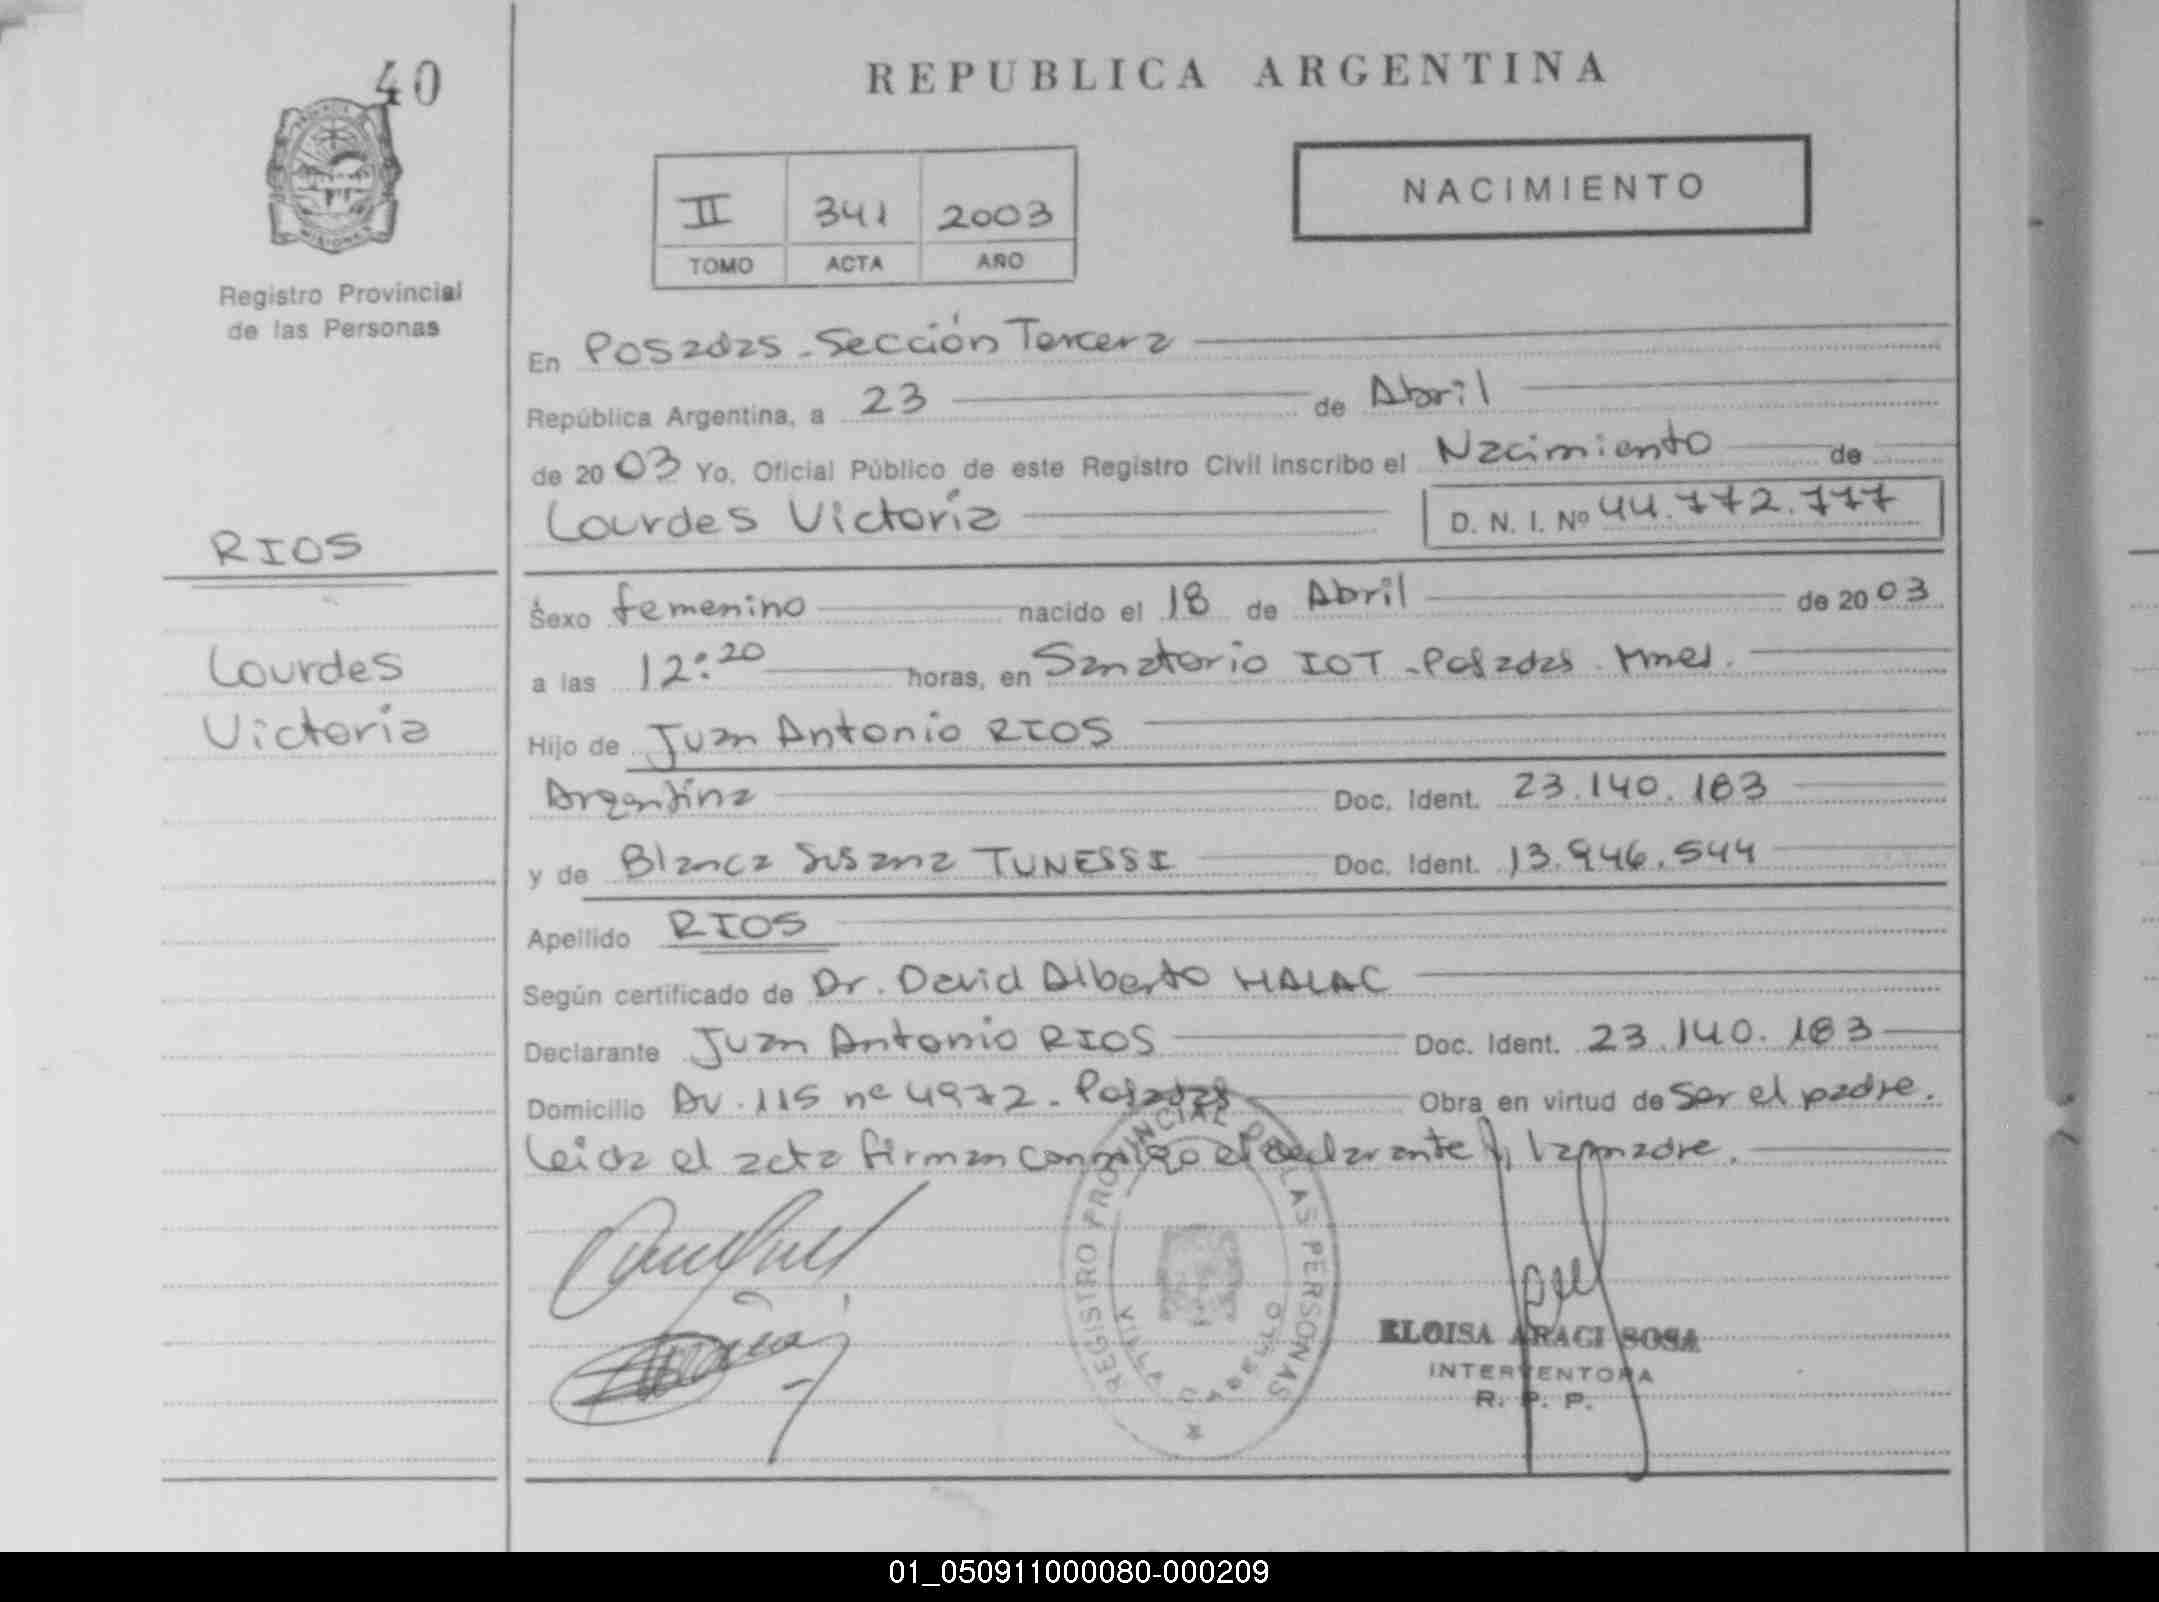 40
REPUBLICA ARGENTINA
NACIMIENTO
II 341 2003
TOMO ACTA AÑO
MISIONES
Registro Provincial
de las Personas
En Posadas - Sección Tercera
República Argentina, a 23 de Abril
de 2003 Yo, Oficial Público de este Registro Civil inscribo el Nacimiento de
Lourdes Victoria D. N. I. Nº 44.772.777
RIOS
Lourdes
Victoria
Sexo femenino nacido el 18 de Abril de 2003
a las 12:20 horas, en Sanatorio IOT - Posadas - Mnes.
Hijo de Juan Antonio RIOS
Argentina Doc. Ident. 23.140.183
y de Blanca Susana TUNESSI Doc. Ident. 13.946.544
Apellido RIOS
Según certificado de Dr. David Alberto HALAC
Declarante Juan Antonio RIOS Doc. Ident. 23.140.183
Domicilio Av. 115 nº 4972 - Posadas Obra en virtud de ser el padre.
Leida el acta firman conmigo el declarante y la madre.
REGISTRO PROVINCIAL DE LAS PERSONAS
VILLA CABELLO
ELOISA ARACI SOSA
INTERVENTORA
R. P. P.
01_050911000080-000209